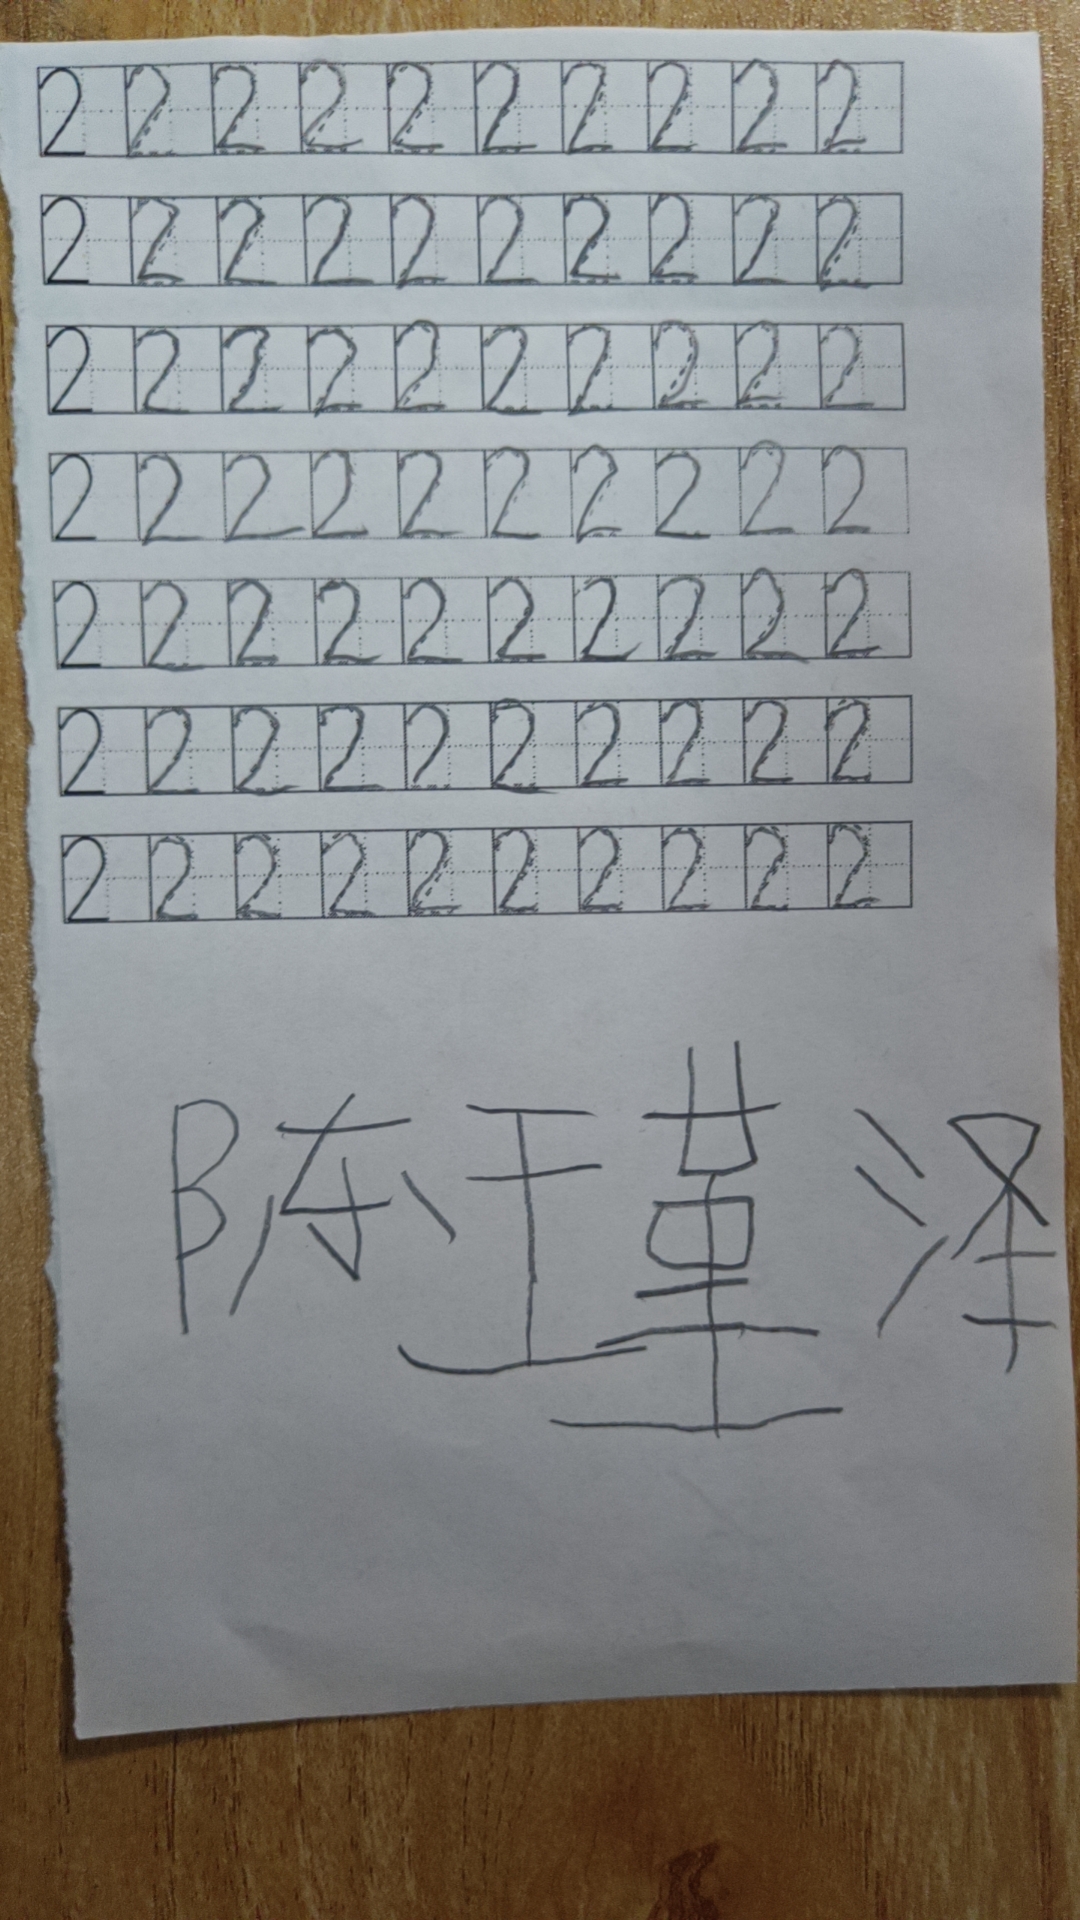 2 2 2 2 2 2 2 2 2 2
2 2 2 2 2 2 2 2 2 2
2 2 2 2 2 2 2 2 2 2
2 2 2 2 2 2 2 2 2 2
2 2 2 2 2 2 2 2 2 2
2 2 2 2 2 2 2 2 2 2
2 2 2 2 2 2 2 2 2 2
陈 泽